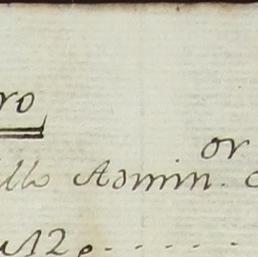 ro
or
llo Admin.
12